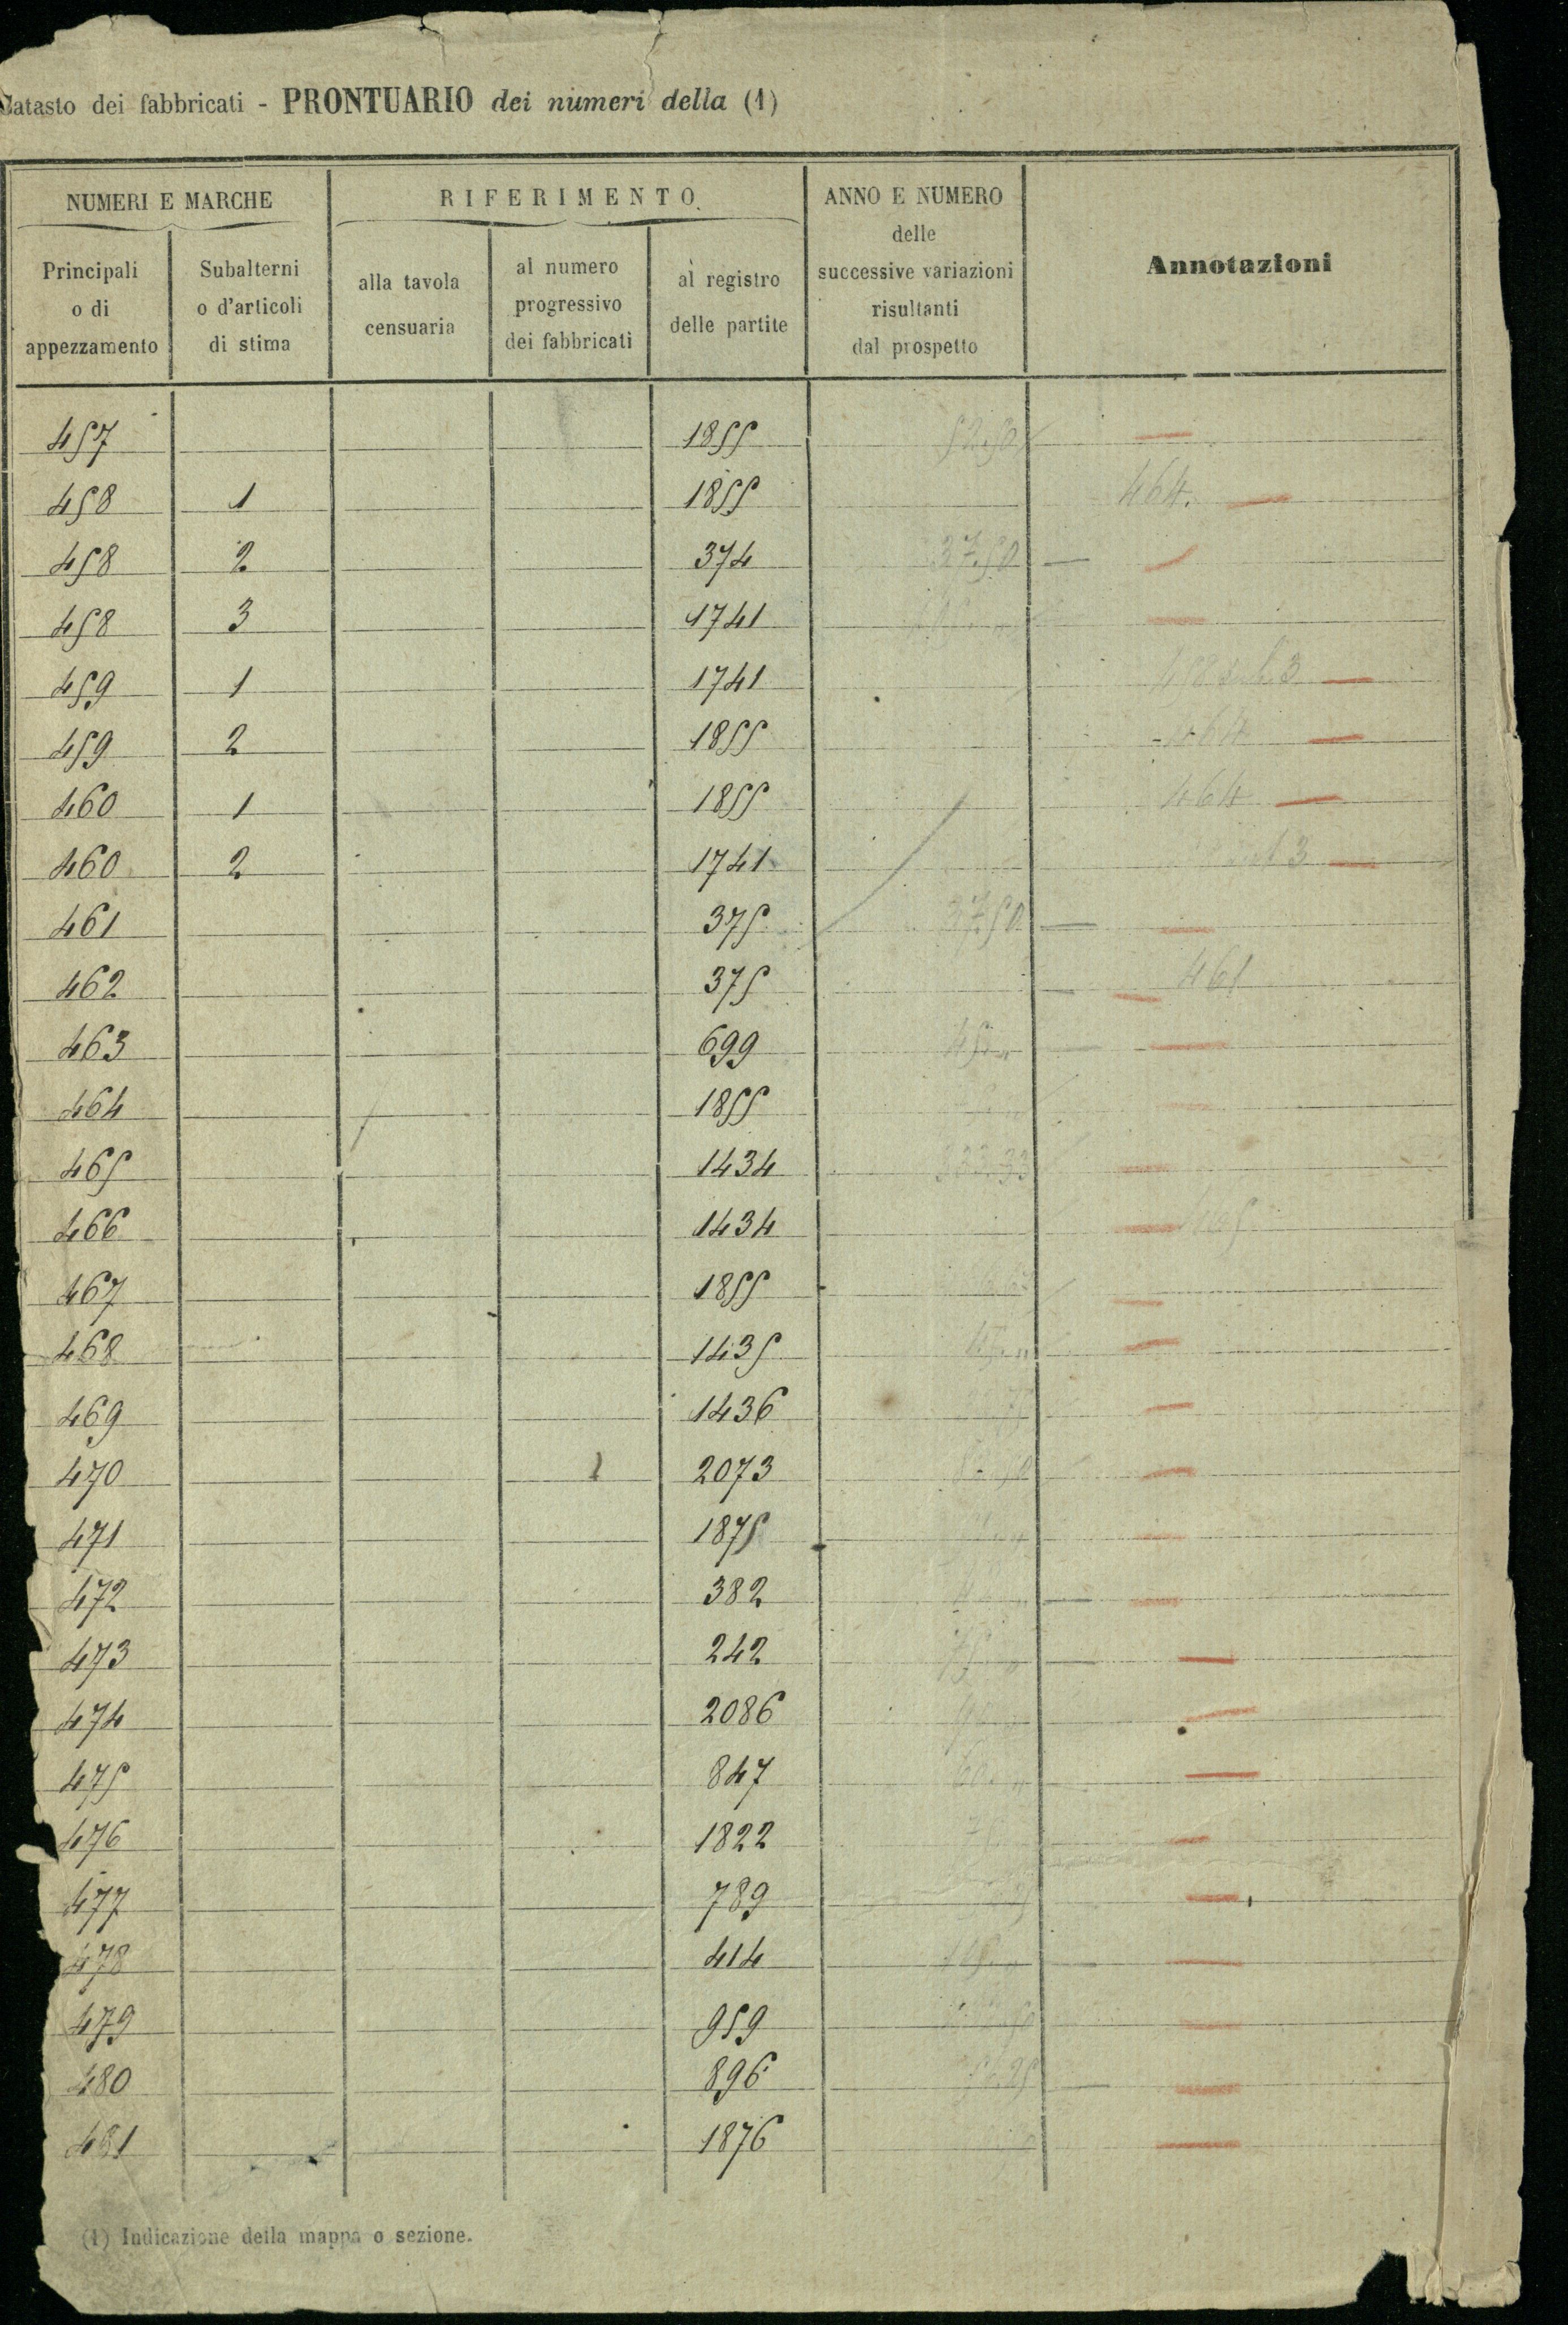 Catasto dei fabbricati - PRONTUARIO dei numeri della (1)
NUMERI E MARCHE
RIFERIMENTO
ANNO E NUMERO delle successive variazioni risultanti dal prospetto
Annotazioni
Principali o di appezzamento
Subalterni o d'articoli di stima
alla tavola censuaria
al numero progressivo dei fabbricati
al registro delle partite
457 1855 52.50
458 1 1855 464.
458 2 374 37.50
458 3 1741
459 1 1741 458 sub. 3
459 2 1855 464
460 1 1855 464
460 2 1741 3
461 375 37.50
462 375 461
463 699 45 „
464 1855
465 1434 333.33
466 1434
467 1855
468 1435
469 1436
470 2073
471 1875
472 382
473 242 75 „
474 2086
475 847 60. „
476 1822
477 789
478 414
479 959
480 896
481 1876
(1) Indicazione della mappa o sezione.